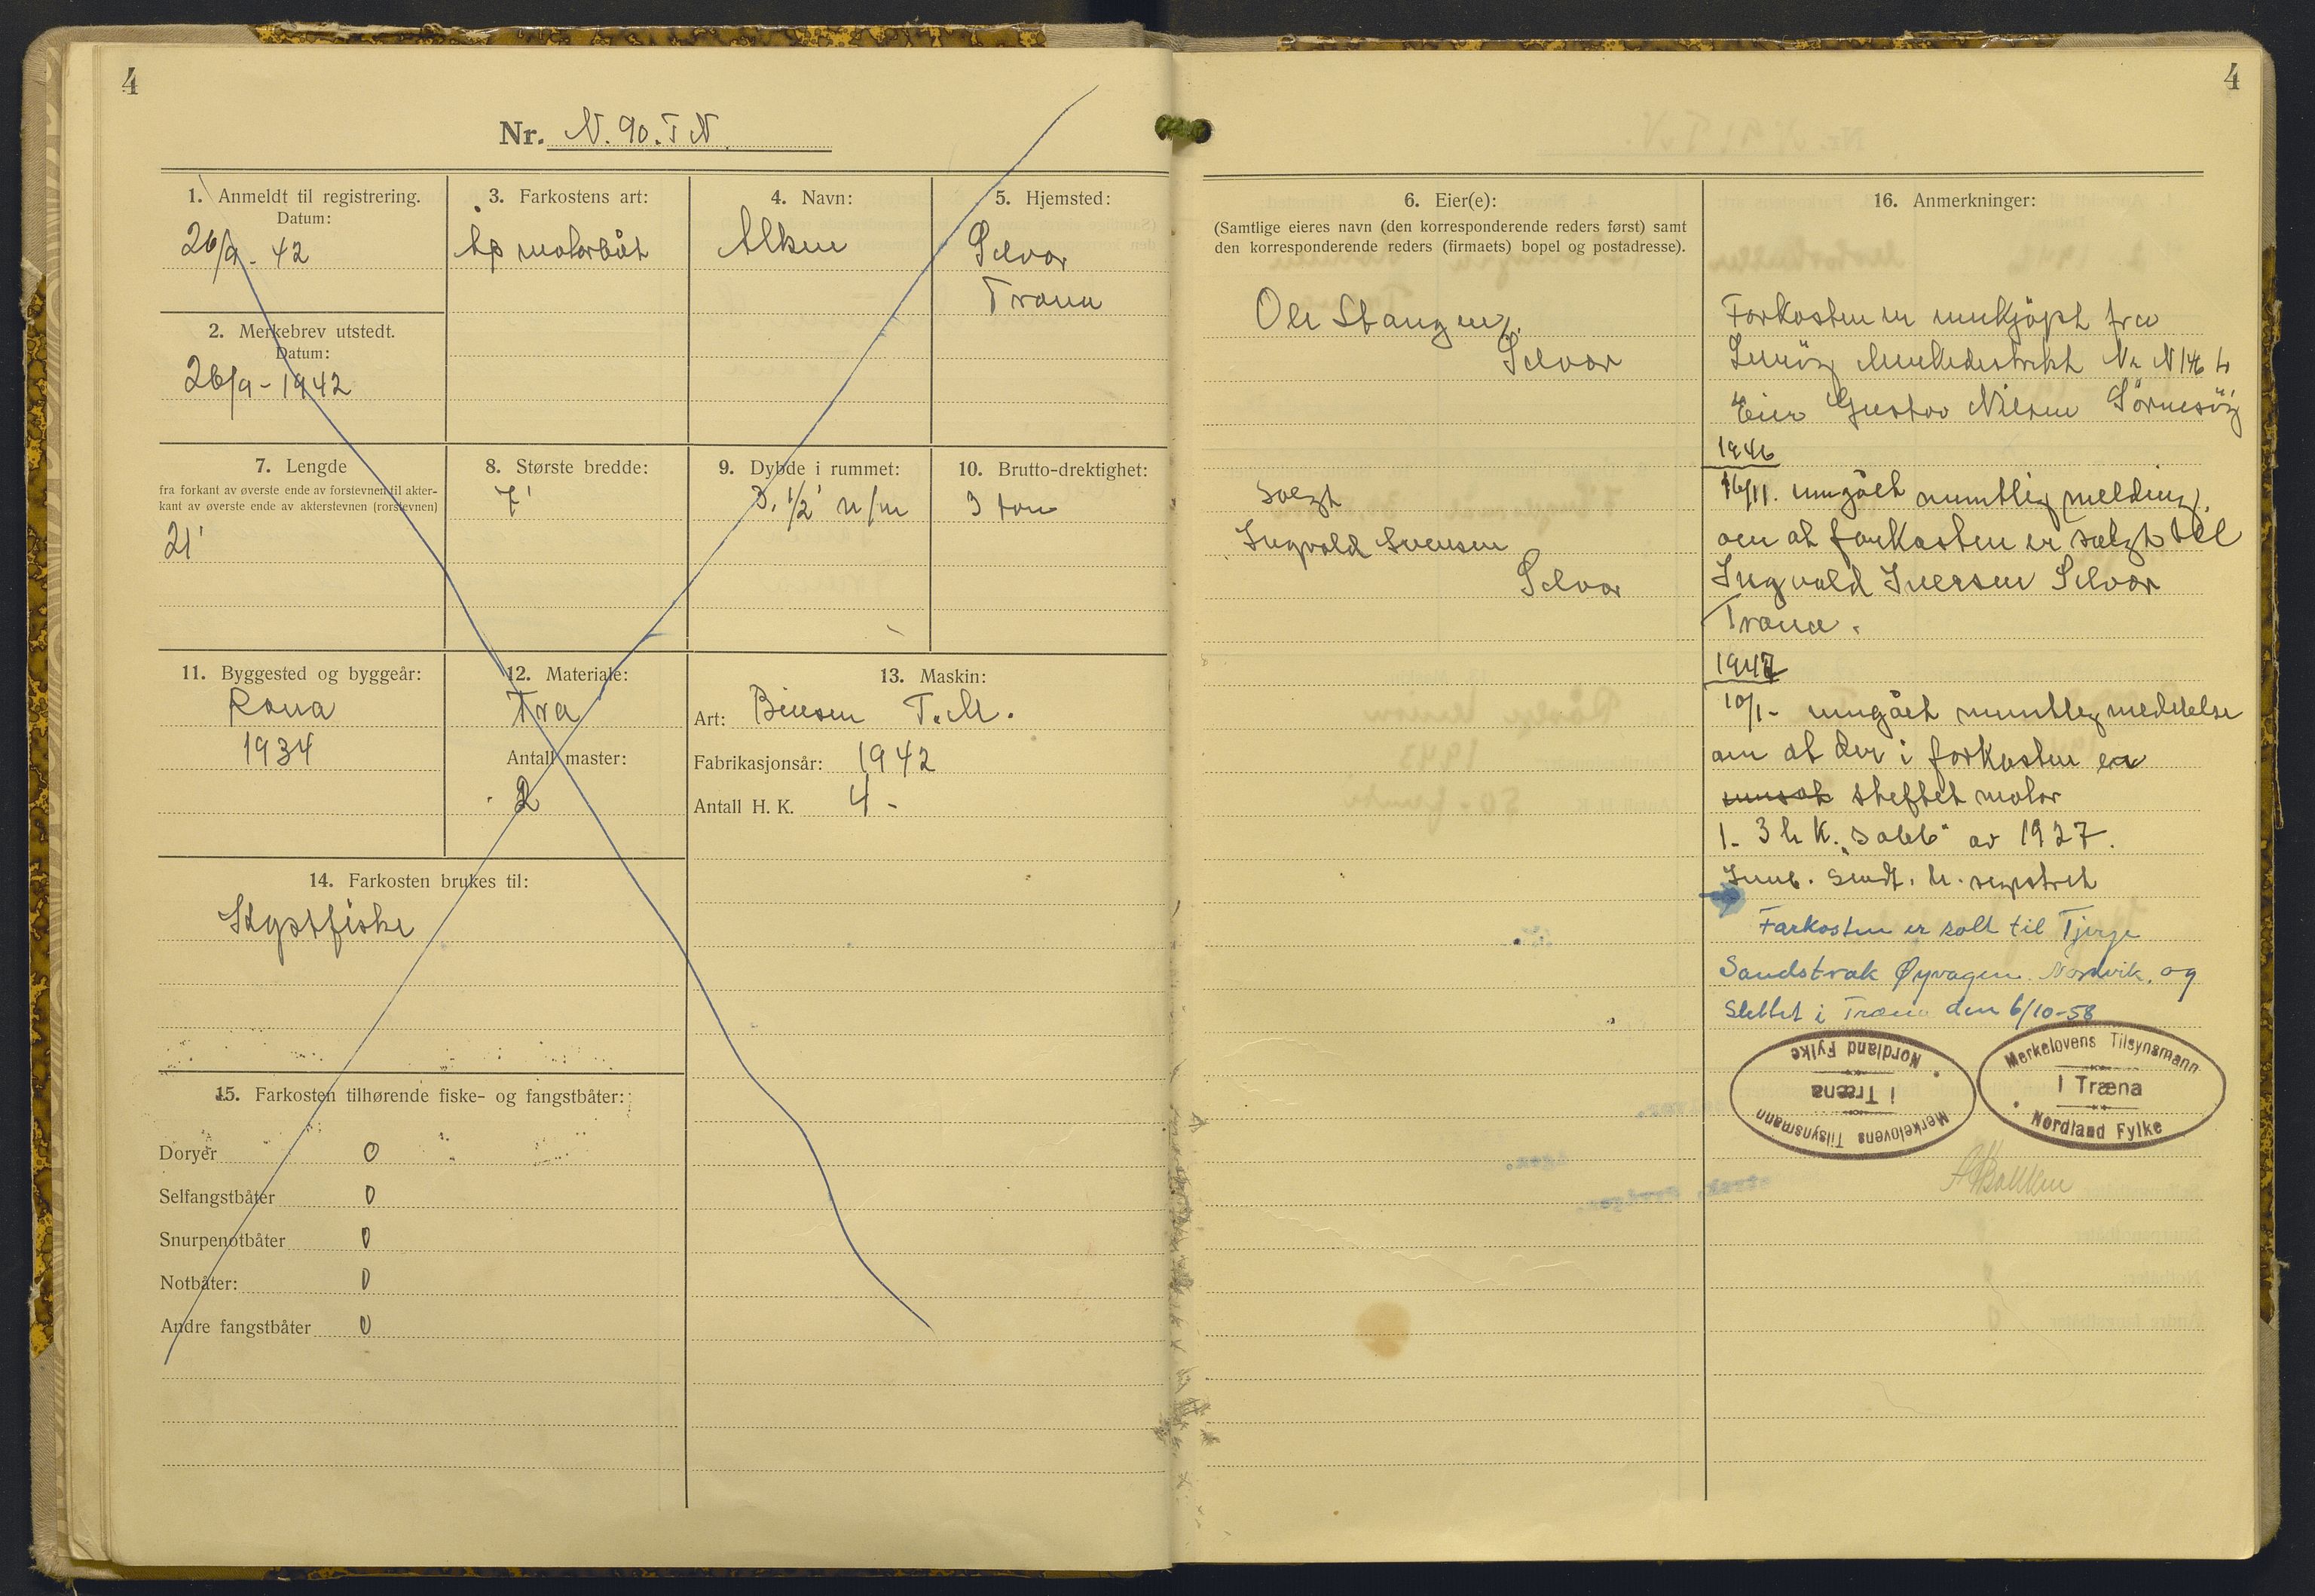 4
Nr. N. 90. T N.
1. Anmeldt til registrering.
Datum:
26/9 - 42
2. Merkebrev utstedt.
Datum:
26/9 - 1942
3. Farkostens art:
motorbåt
4. Navn:
Alken
5. Hjemsted:
Selvær
Træna
7. Lengde
fra forkant av øverste ende av forstevnen til akter-
kant av øverste ende av akterstevnen (rorstevnen)
21'
8. Største bredde:
7'
9. Dybde i rummet:
3. 1/2'
10. Brutto-drektighet:
3 ton
11. Byggested og byggeår:
Rana
1934
12. Materiale:
Tre
Antall master:
2
13. Maskin:
Art: T. M.
Fabrikasjonsår: 1942
Antall H. K. 4 -
14. Farkosten brukes til:
Kystfiske
15. Farkosten tilhørende fiske- og fangstbåter:
Doryer 0
Selfangstbåter 0
Snurpenotbåter 0
Notbåter: 0
Andre fangstbåter 0
4
6. Eier(e):
(Samtlige eieres navn (den korresponderende reders først) samt
den korresponderende reders (firmaets) bopel og postadresse).
Ole Stangen,
Selvær
Solgt
Ingvald Iversen
Selvær
16. Anmerkninger:
Farkosten er innkjöpt fra
Luröy Merkedistrikt Nr N 146 L
Eier Gustav Nilsen Sörnesöy
1946
16/11. inngått muntlig melding
om at farkosten er solgt til
Ingvald Iversen Selvær
Træna.
1947
10/1 - inngått muntlig meddelelse
om at der i farkosten er
innsat skiftet motor
1 - 3 h K. „Sabb" av 1927.
Innb. Sendt. h. registret
Farkosten er solt til
Sandstrak Øyvagen Nordvik. og
Slettet i Træna den 6/10-58
Merkelovens Tilsynsmann
i Træna
Nordland Fylke
Merkelovens Tilsynsmann
i Træna
Nordland Fylke